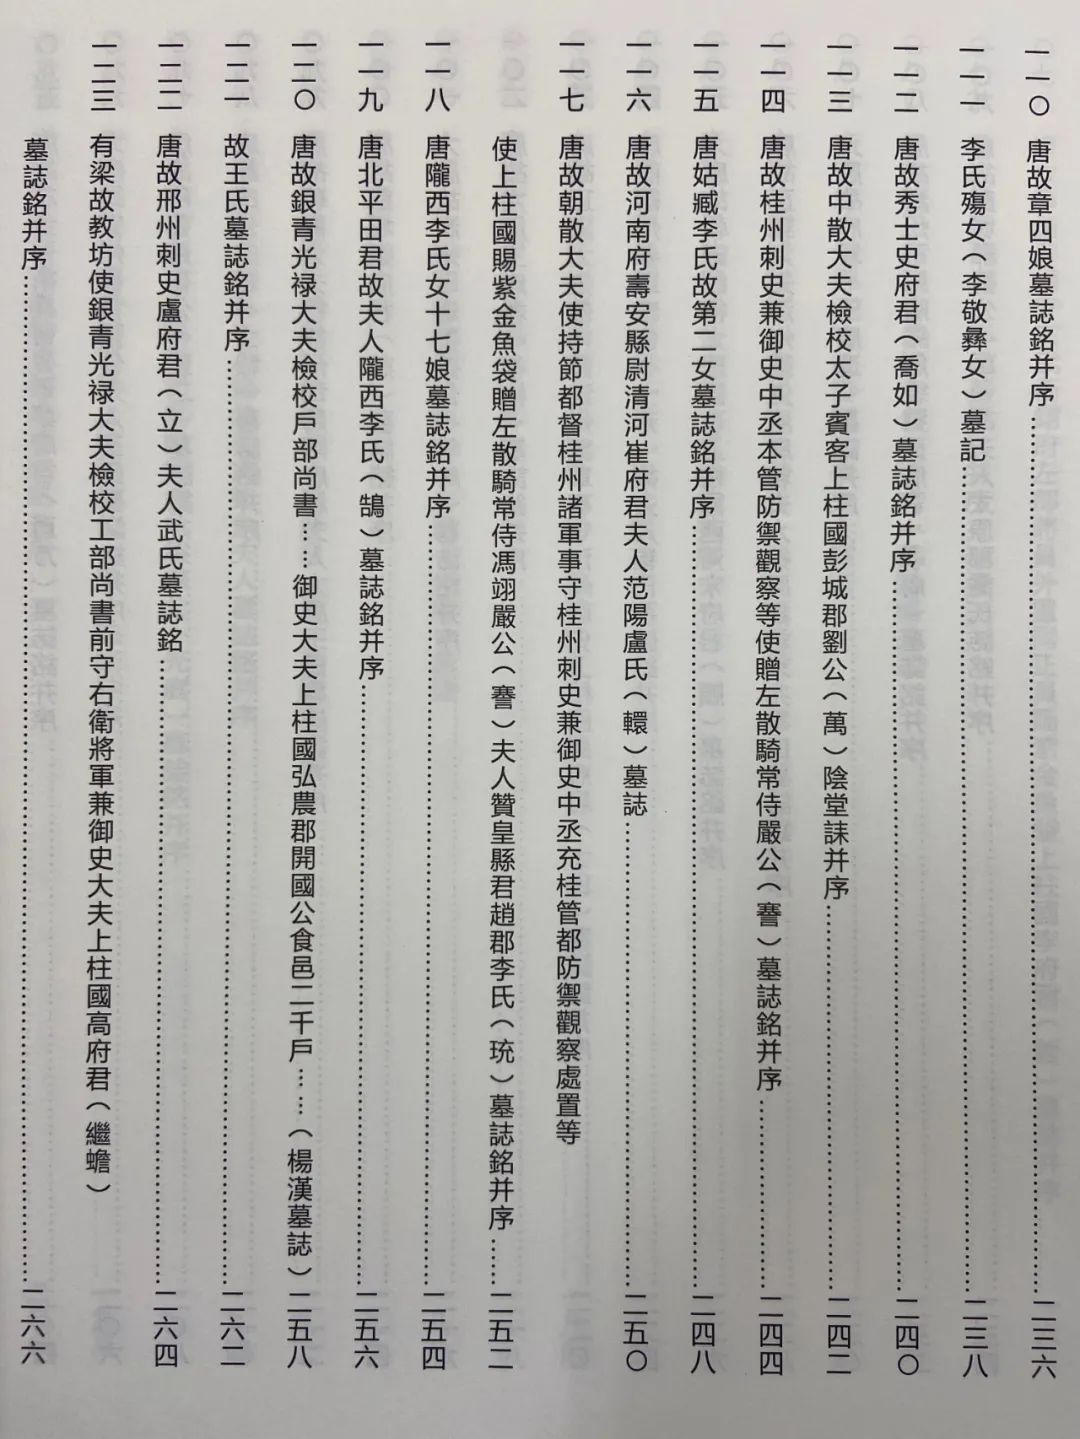 一一〇 唐故章四娘墓誌銘并序……二三六
一一一 李氏殤女（李敬彝女）墓記……二三八
一一二 唐故秀士史府君（喬如）墓誌銘并序……二四〇
一一三 唐故中散大夫檢校太子賓客上柱國彭城郡劉公（萬）陰堂誄并序……二四二
一一四 唐故桂州刺史兼御史中丞本管防禦觀察等使贈左散騎常侍嚴公（謇）墓誌銘并序……二四四
一一五 唐姑臧李氏故第二女墓誌銘并序……二四八
一一六 唐故河南府壽安縣尉清河崔府君夫人范陽盧氏（轘）墓誌……二五〇
一一七 唐故朝散大夫使持節都督桂州諸軍事守桂州刺史兼御史中丞充桂管都防禦觀察處置等
使上柱國賜紫金魚袋贈左散騎常侍馮翊嚴公（謇）夫人贊皇縣君趙郡李氏（琉）墓誌銘并序……二五二
一一八 唐隴西李氏女十七娘墓誌銘并序……二五四
一一九 唐北平田君故夫人隴西李氏（鵠）墓誌銘并序……二五六
一二〇 唐故銀青光禄大夫檢校戶部尚書……御史大夫上柱國弘農郡開國公食邑二千戶……（楊漢墓誌）二五八
一二一 故王氏墓誌銘并序……二六二
一二二 唐故邢州刺史盧府君（立）夫人武氏墓誌銘……二六四
一二三 有梁故教坊使銀青光禄大夫檢校工部尚書前守右衛將軍兼御史大夫上柱國高府君（繼蟾）
墓誌銘并序……二六六